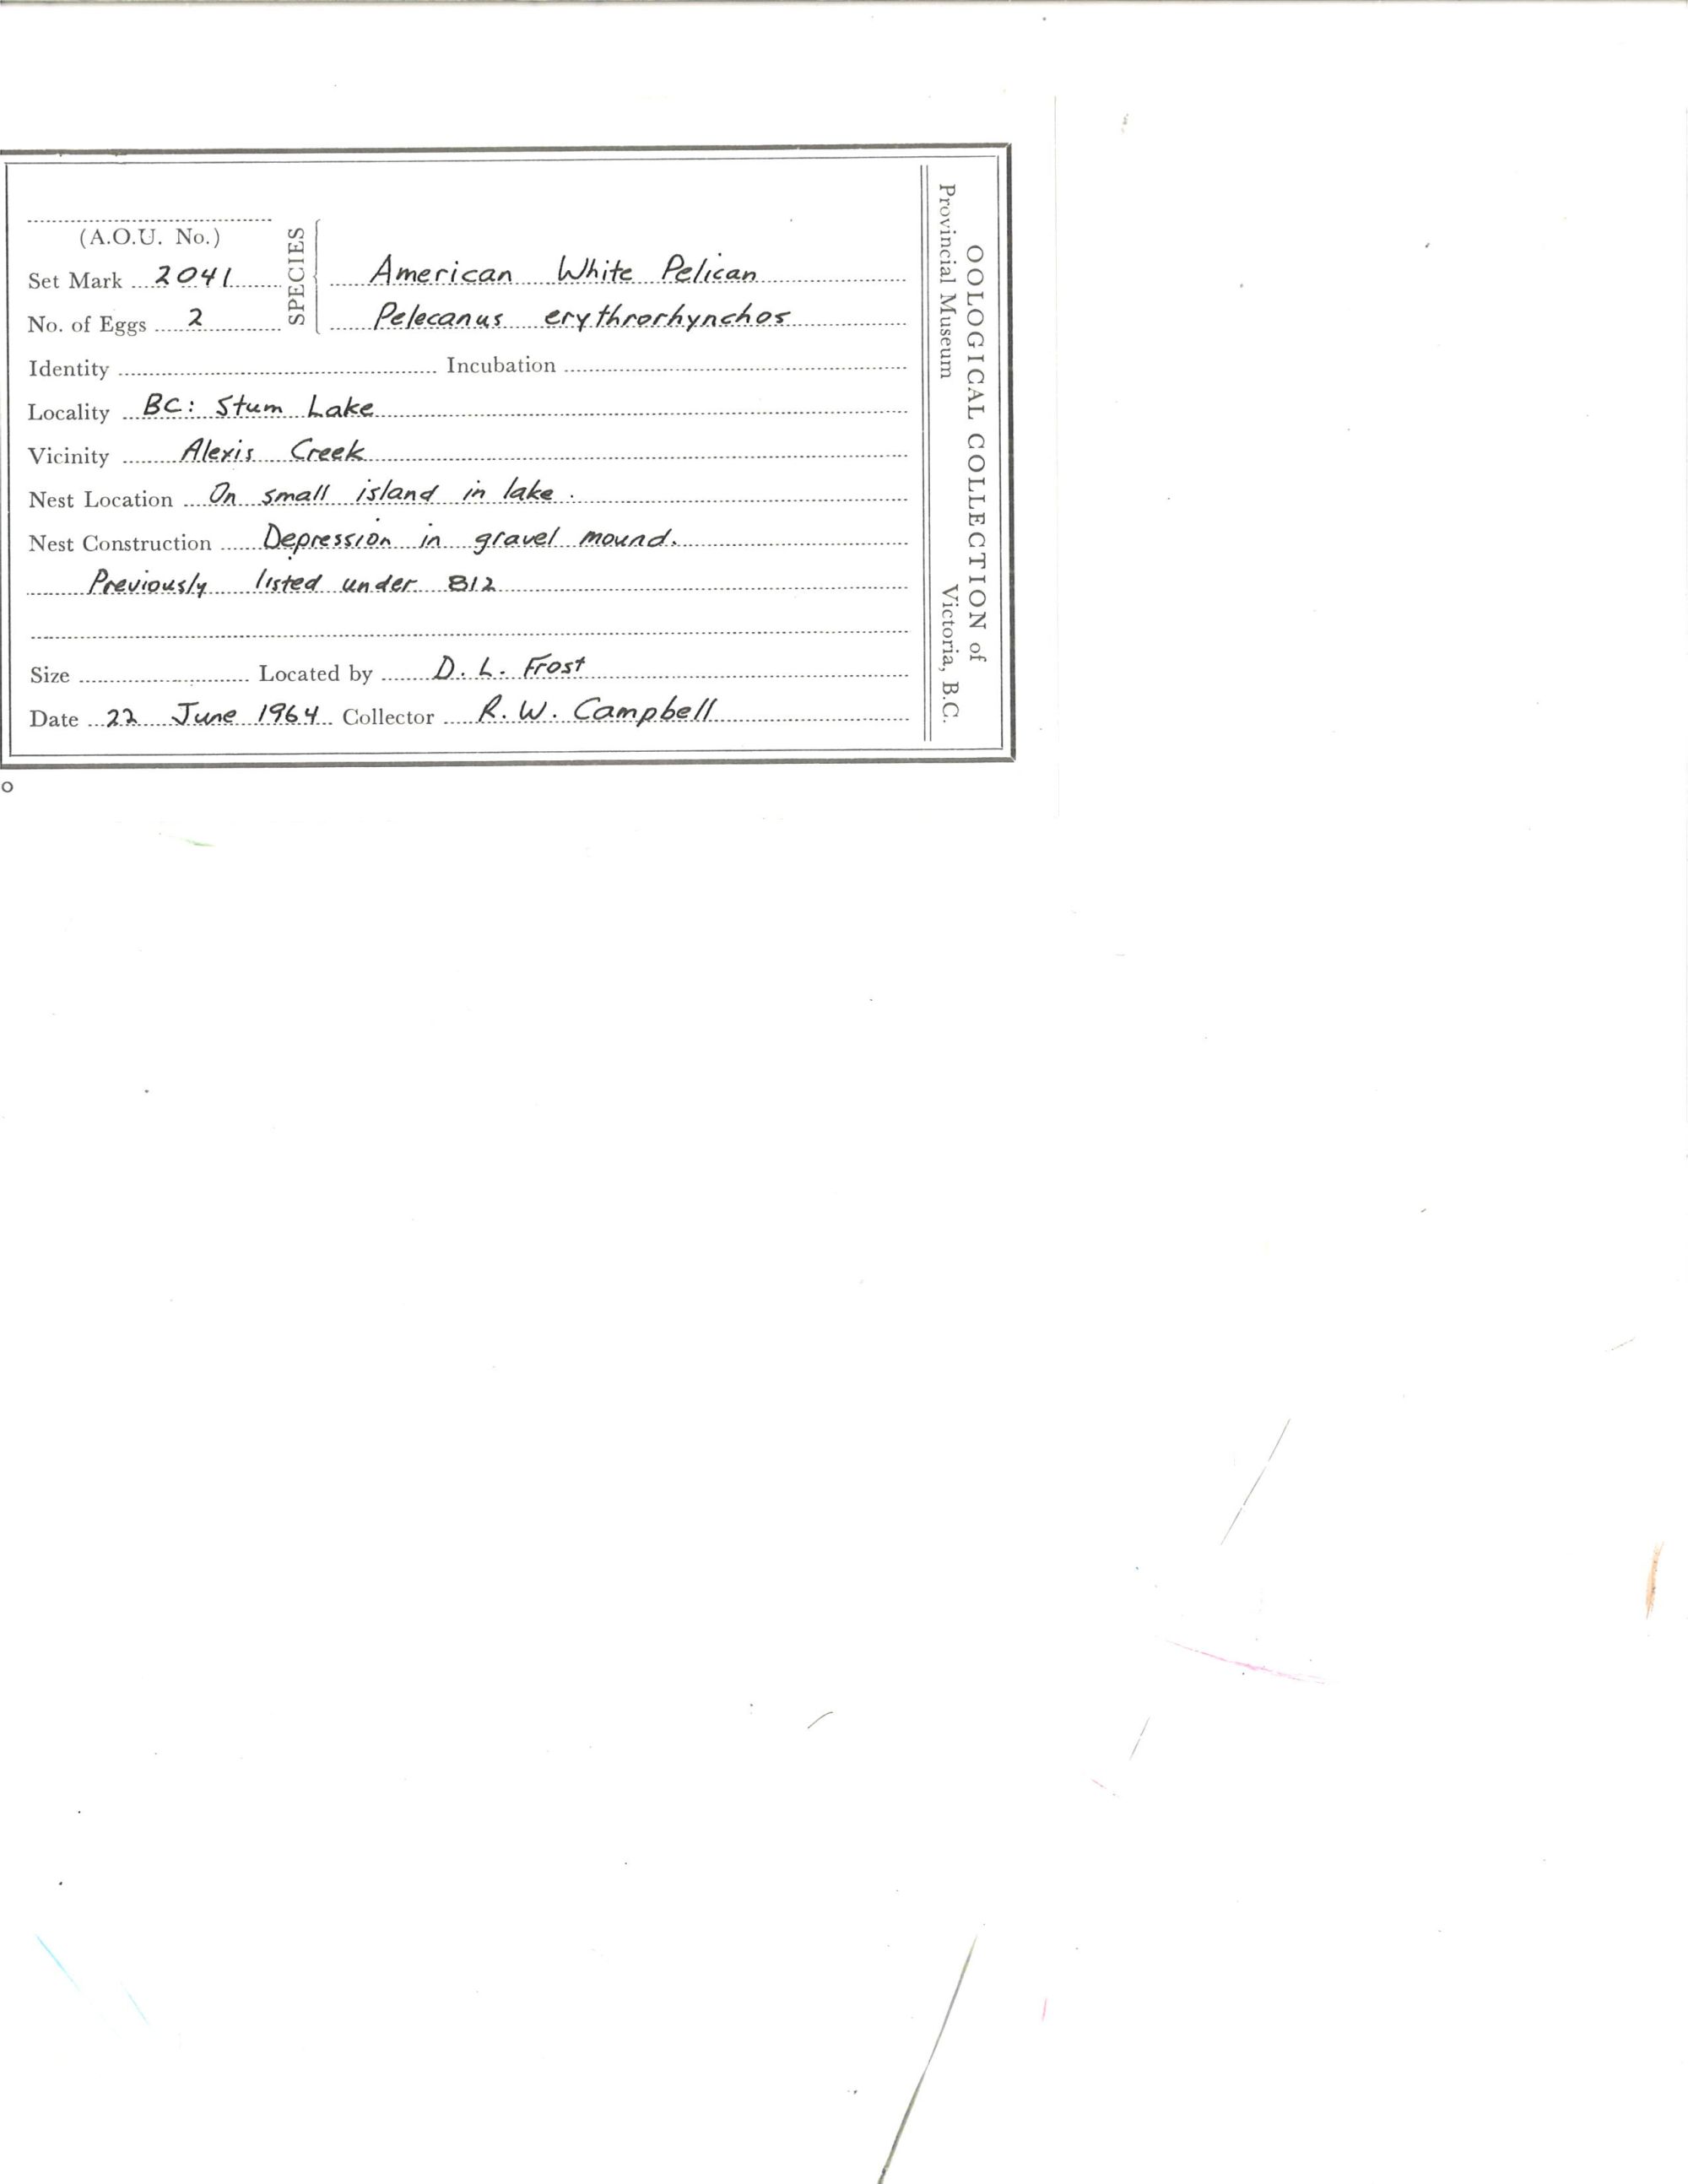 (A.O.U. No.)
SPECIES
Set Mark 2041
American White Pelican
No. of Eggs 2
Pelecanus erythrorhynchos
Identity Incubation
Locality BC: Stum Lake
Vicinity Alexis Creek
Nest Location On small island in lake.
Nest Construction Depression in gravel mound.
Previously listed under 812
Size Located by D. L. Frost
Date 22 June 1964 Collector R. W. Campbell
OOLOGICAL COLLECTION of
Provincial Museum Victoria, B.C.